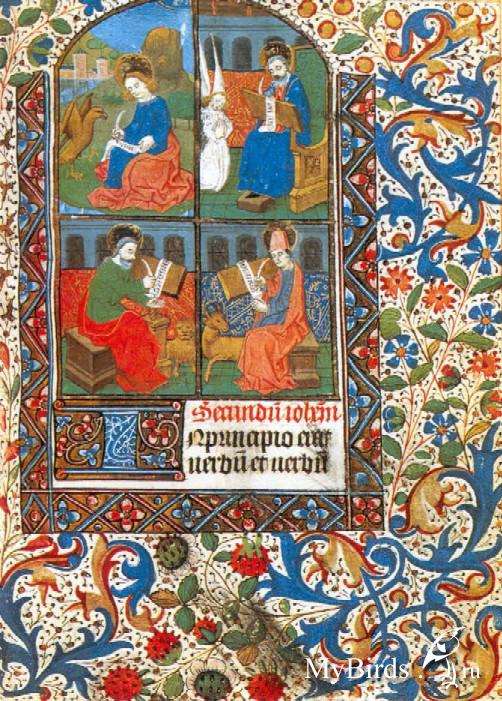 Secundū iohēm
INprincipio erat
uerbū et uerbū
MyBirds.ru